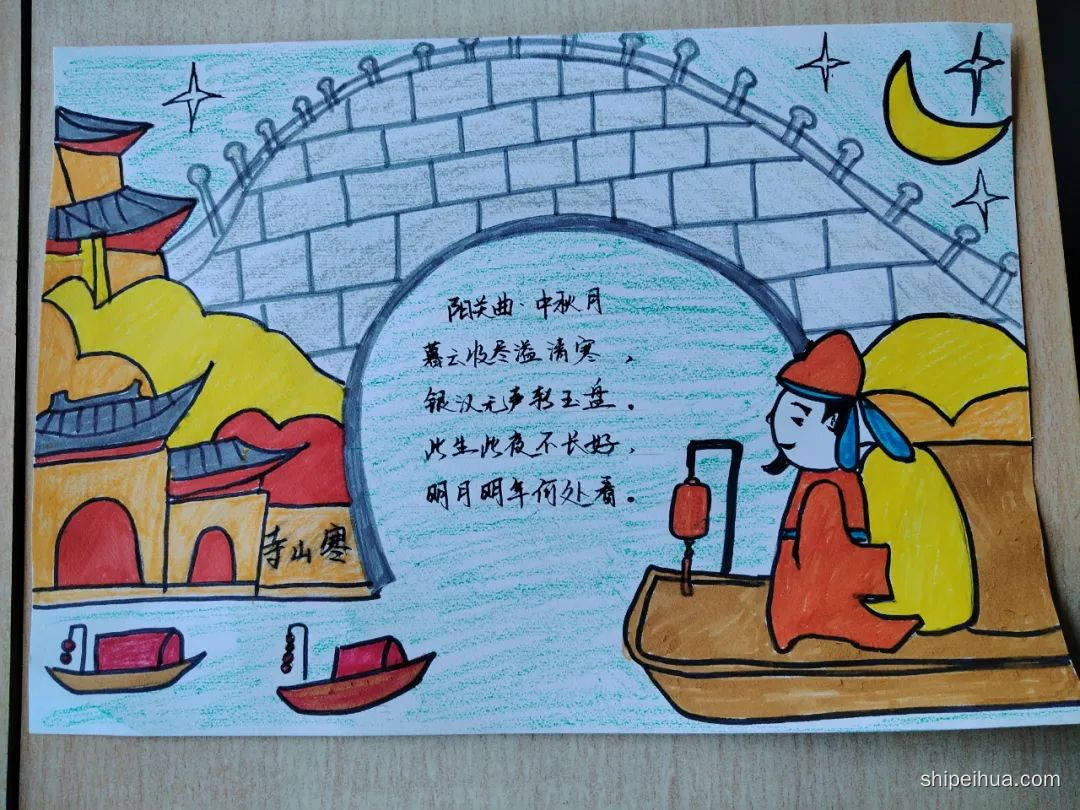 阳关曲·中秋月
暮云收尽溢清寒，
银汉无声转玉盘。
此生此夜不长好，
明月明年何处看。
寺山寒
shipeihua.com